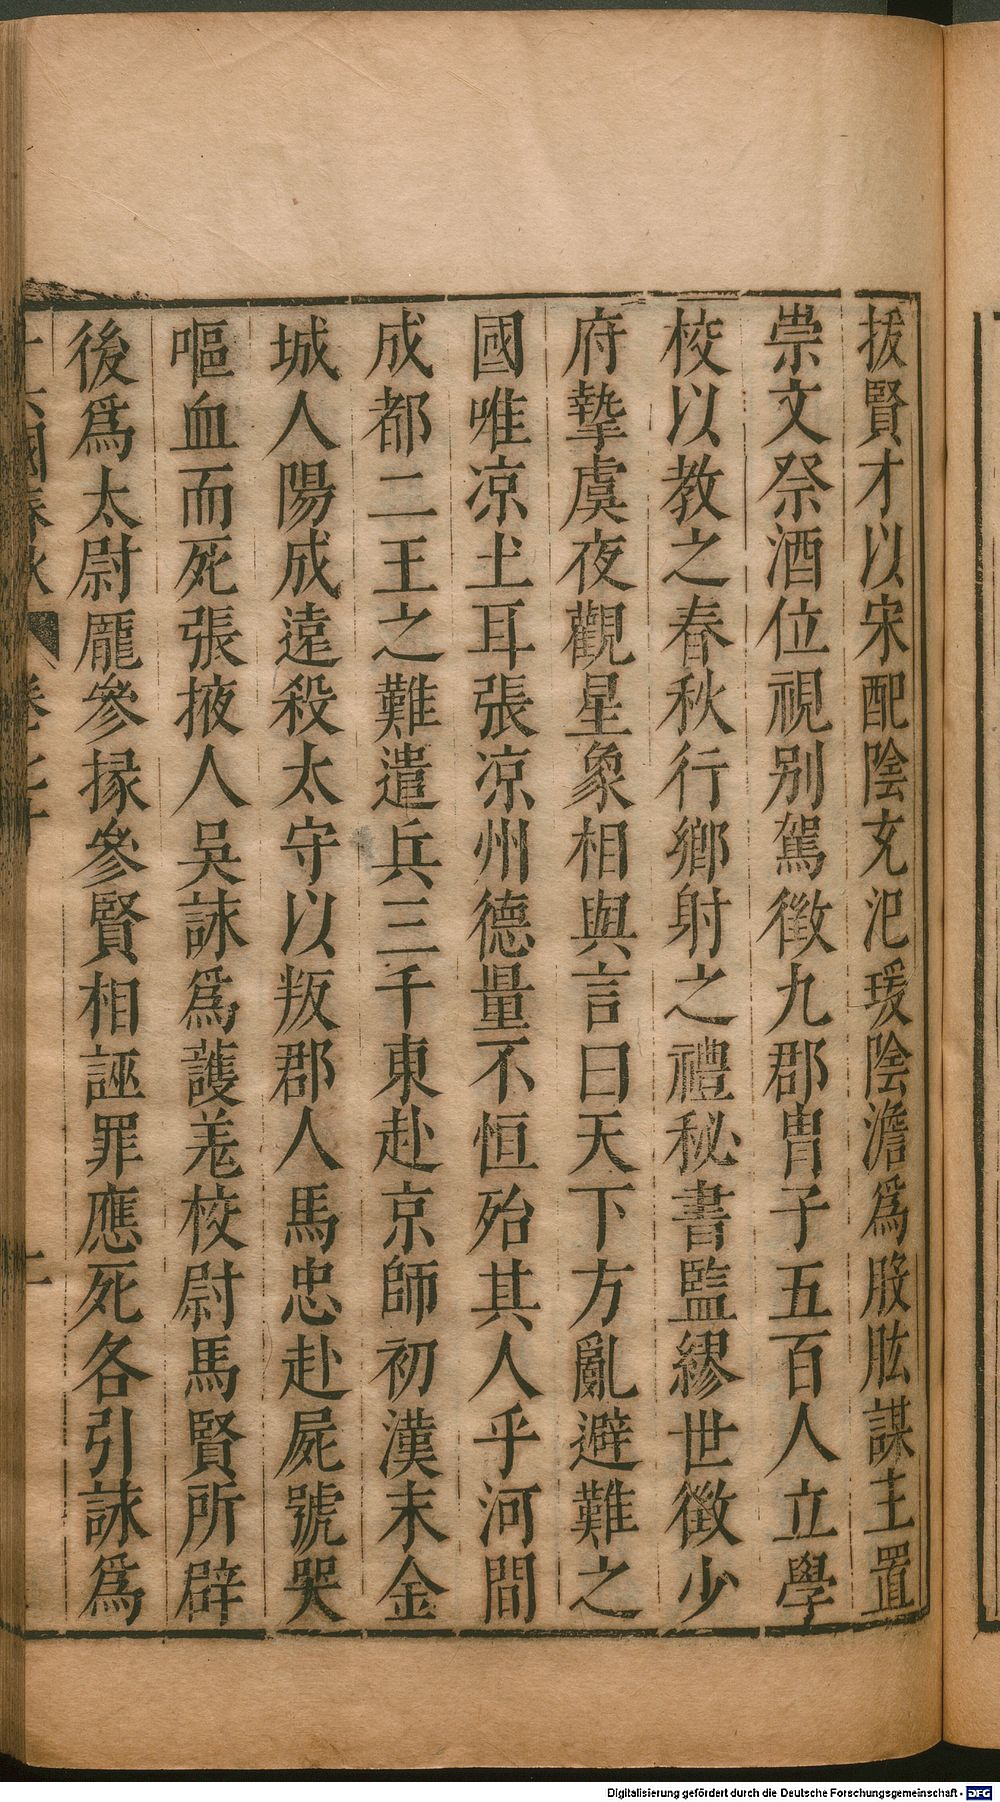 拔賢才以宋配陰充氾瑗陰澹爲股肱謀主置
崇文祭酒位視别駕徵九郡胄子五百人立學
校以教之春秋行鄉射之禮秘書監繆世徵少
府摯虞夜觀星象相與言曰天下方亂避難之
國唯凉土耳張凉州德量不恒殆其人乎河間
成都二王之難遣兵三千東赴京師初漢末金
城人陽成遠殺太守以叛郡人馮忠赴屍號哭
嘔血而死張掖人吳詠爲護羌校尉馬賢所辟
後爲太尉龐參掾參賢相誣罪應死各引詠爲
十六國春秋 卷七十 一
Digitalisierung gefördert durch die Deutsche Forschungsgemeinschaft - DFG